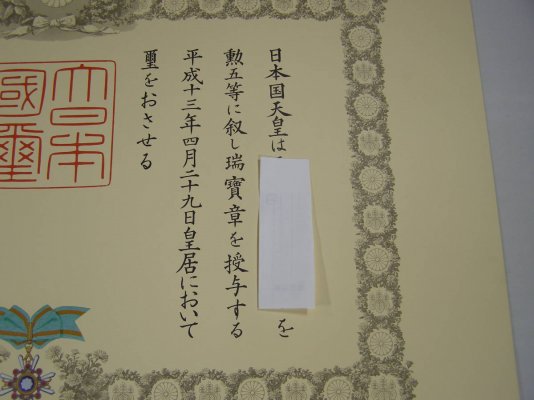 日本国天皇は
を
勲五等に叙し瑞寶章を授与する
平成十三年四月二十九日皇居において
璽をおさせる
大日本
國璽